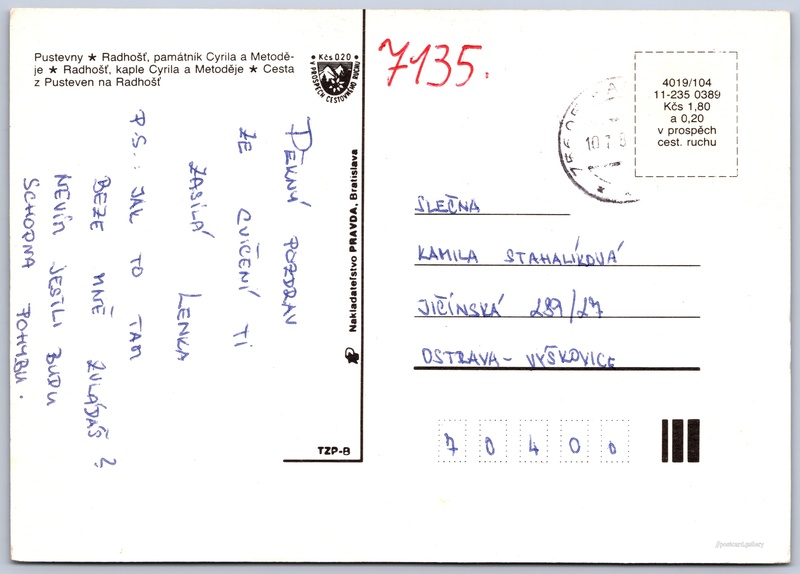 Pustevny ★ Radhošť, památník Cyrila a Metodě-
je ★ Radhošť, kaple Cyrila a Metoděje ★ Cesta
z Pusteven na Radhošť
Kčs 0.20
V PROSPĚCH CESTOVNÉHO RUCHU
PĚKNÝ POZDRAV
ZE CVIČENÍ TI
ZASÍLÁ LENKA
P.S.: JAK TO TAM
BEZE MNĚ ZVLÁDÁŠ?
NEVÍM JESTLI BUDU
SCHOPNA POHYBU.
Nakladateľstvo PRAVDA, Bratislava
TZP-B
7135.
4019/104
11-235 0389
Kčs 1,80
a 0,20
v prospěch
cest. ruchu
SLEČNA
KAMILA STAHALÍKOVÁ
JIČÍNSKÁ 289/27
OSTRAVA - VÝŠKOVICE
70400
//postcard.gallery